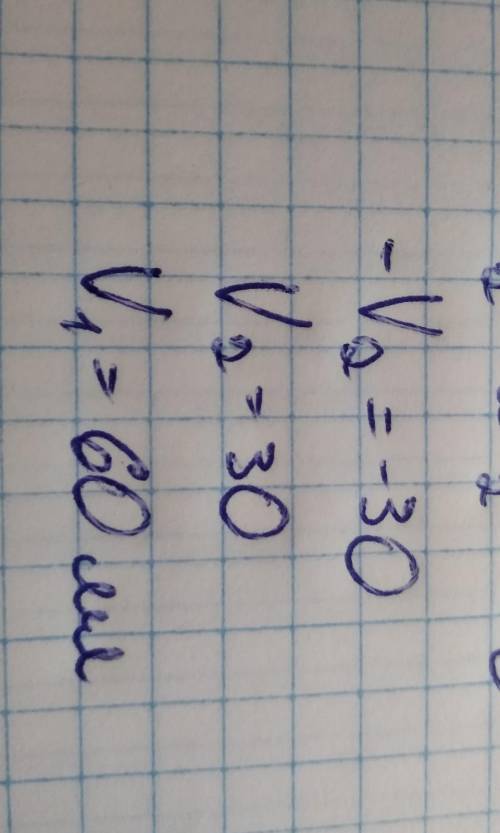 -V₂ = -30
V₂ = 30
V₁ = 60 мл